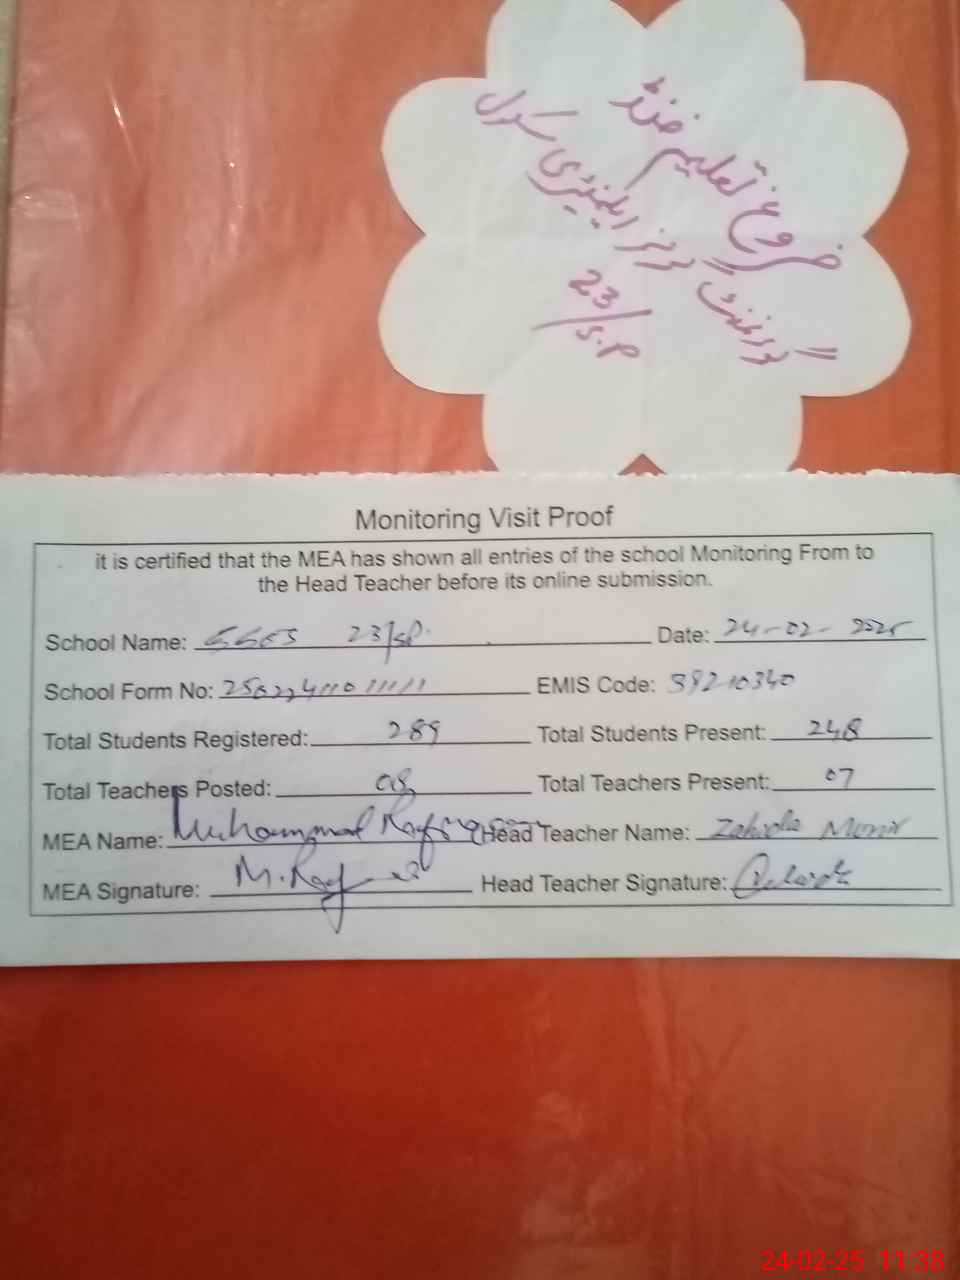 فروغ تعلیم فنڈ
گورنمنٹ گرلز ایلیمنٹری سکول
23/S.P
Monitoring Visit Proof
it is certified that the MEA has shown all entries of the school Monitoring From to
the Head Teacher before its online submission.
School Name: GGES 23/SP. Date: 24-02-2025
School Form No: EMIS Code: 39210340
Total Students Registered: 289 Total Students Present: 248
Total Teachers Posted: 08 Total Teachers Present: 07
MEA Name: Muhammad Head Teacher Name: Zahida Munir
MEA Signature: Head Teacher Signature:
24-02-25 11:38